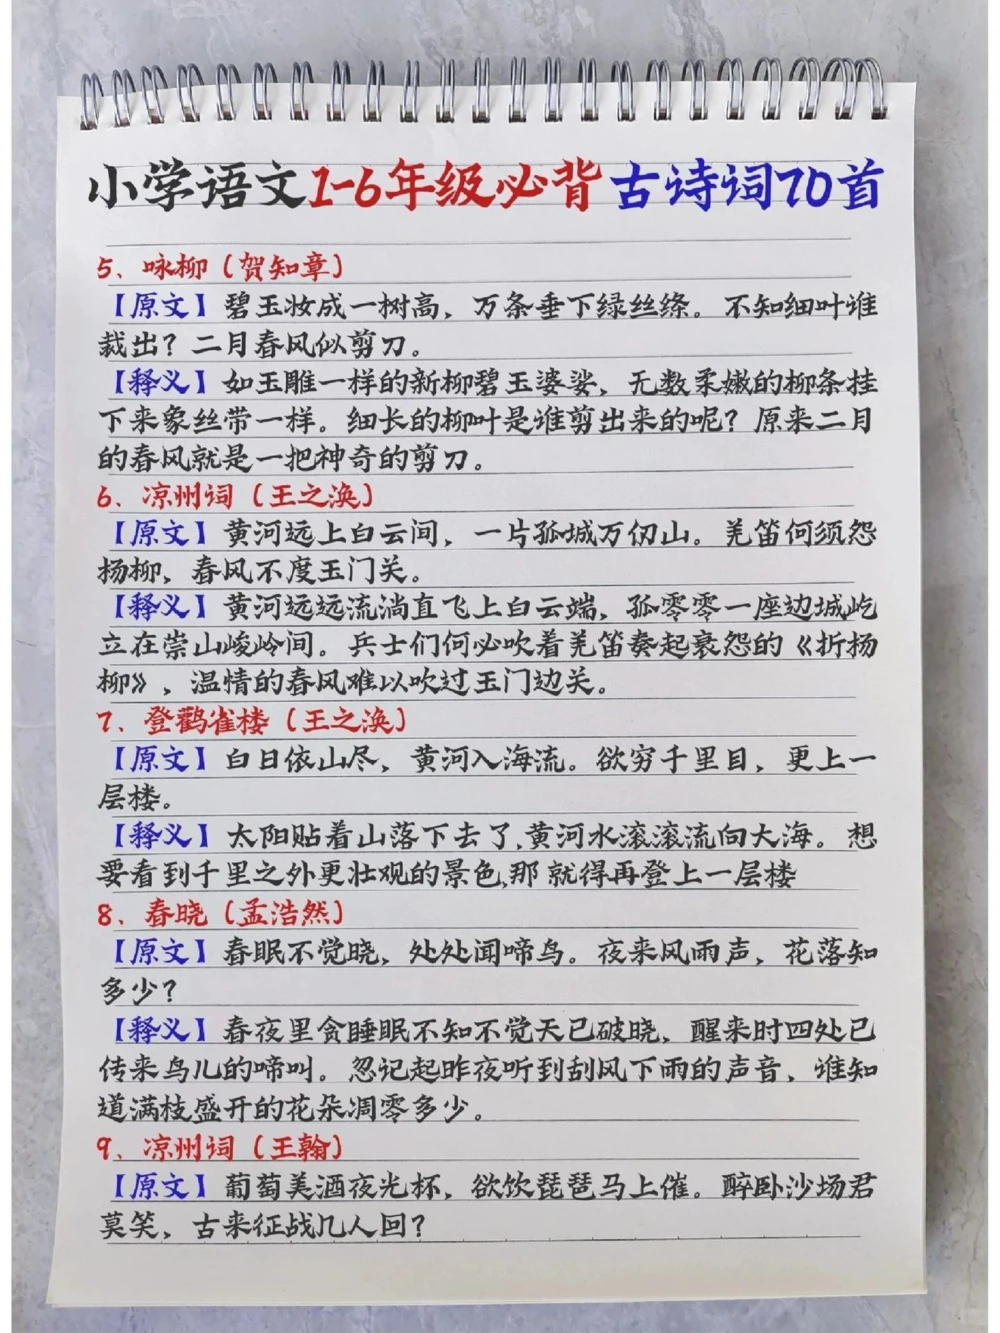 小学语文1-6年级必背古诗词70首
5、咏柳（贺知章）
【原文】碧玉妆成一树高，万条垂下绿丝绦。不知细叶谁
裁出？二月春风似剪刀。
【释义】如玉雕一样的新柳碧玉婆娑，无数柔嫩的柳条挂
下来象丝带一样。细长的柳叶是谁剪出来的呢？原来二月
的春风就是一把神奇的剪刀。
6、凉州词（王之涣）
【原文】黄河远上白云间，一片孤城万仞山。羌笛何须怨
杨柳，春风不度玉门关。
【释义】黄河远远流淌直飞上白云端，孤零零一座边城屹
立在崇山峻岭间。兵士们何必吹着羌笛奏起哀怨的《折杨
柳》，温情的春风难以吹过玉门边关。
7、登鹳雀楼（王之涣）
【原文】白日依山尽，黄河入海流。欲穷千里目，更上一
层楼。
【释义】太阳贴着山落下去了,黄河水滚滚流向大海。想
要看到千里之外更壮观的景色,那就得再登上一层楼
8、春晓（孟浩然）
【原文】春眠不觉晓，处处闻啼鸟。夜来风雨声，花落知
多少？
【释义】春夜里贪睡眠不知不觉天已破晓，醒来时四处已
传来鸟儿的啼叫。忽记起昨夜听到刮风下雨的声音，谁知
道满枝盛开的花朵凋零多少。
9、凉州词（王翰）
【原文】葡萄美酒夜光杯，欲饮琵琶马上催。醉卧沙场君
莫笑，古来征战几人回？